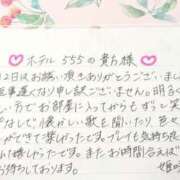 ホテル 555の貴方様
2日はお誘い頂きありがとうございまし
返事遅くなり申し訳ございません。明るく
い方でお部屋に入ってからもずっと笑
なしで懐かしい歌を聞いたり、色々
ができて楽しかったです。プレイも気持ち良
しかったです。またお時間合えば
お待ちしております。